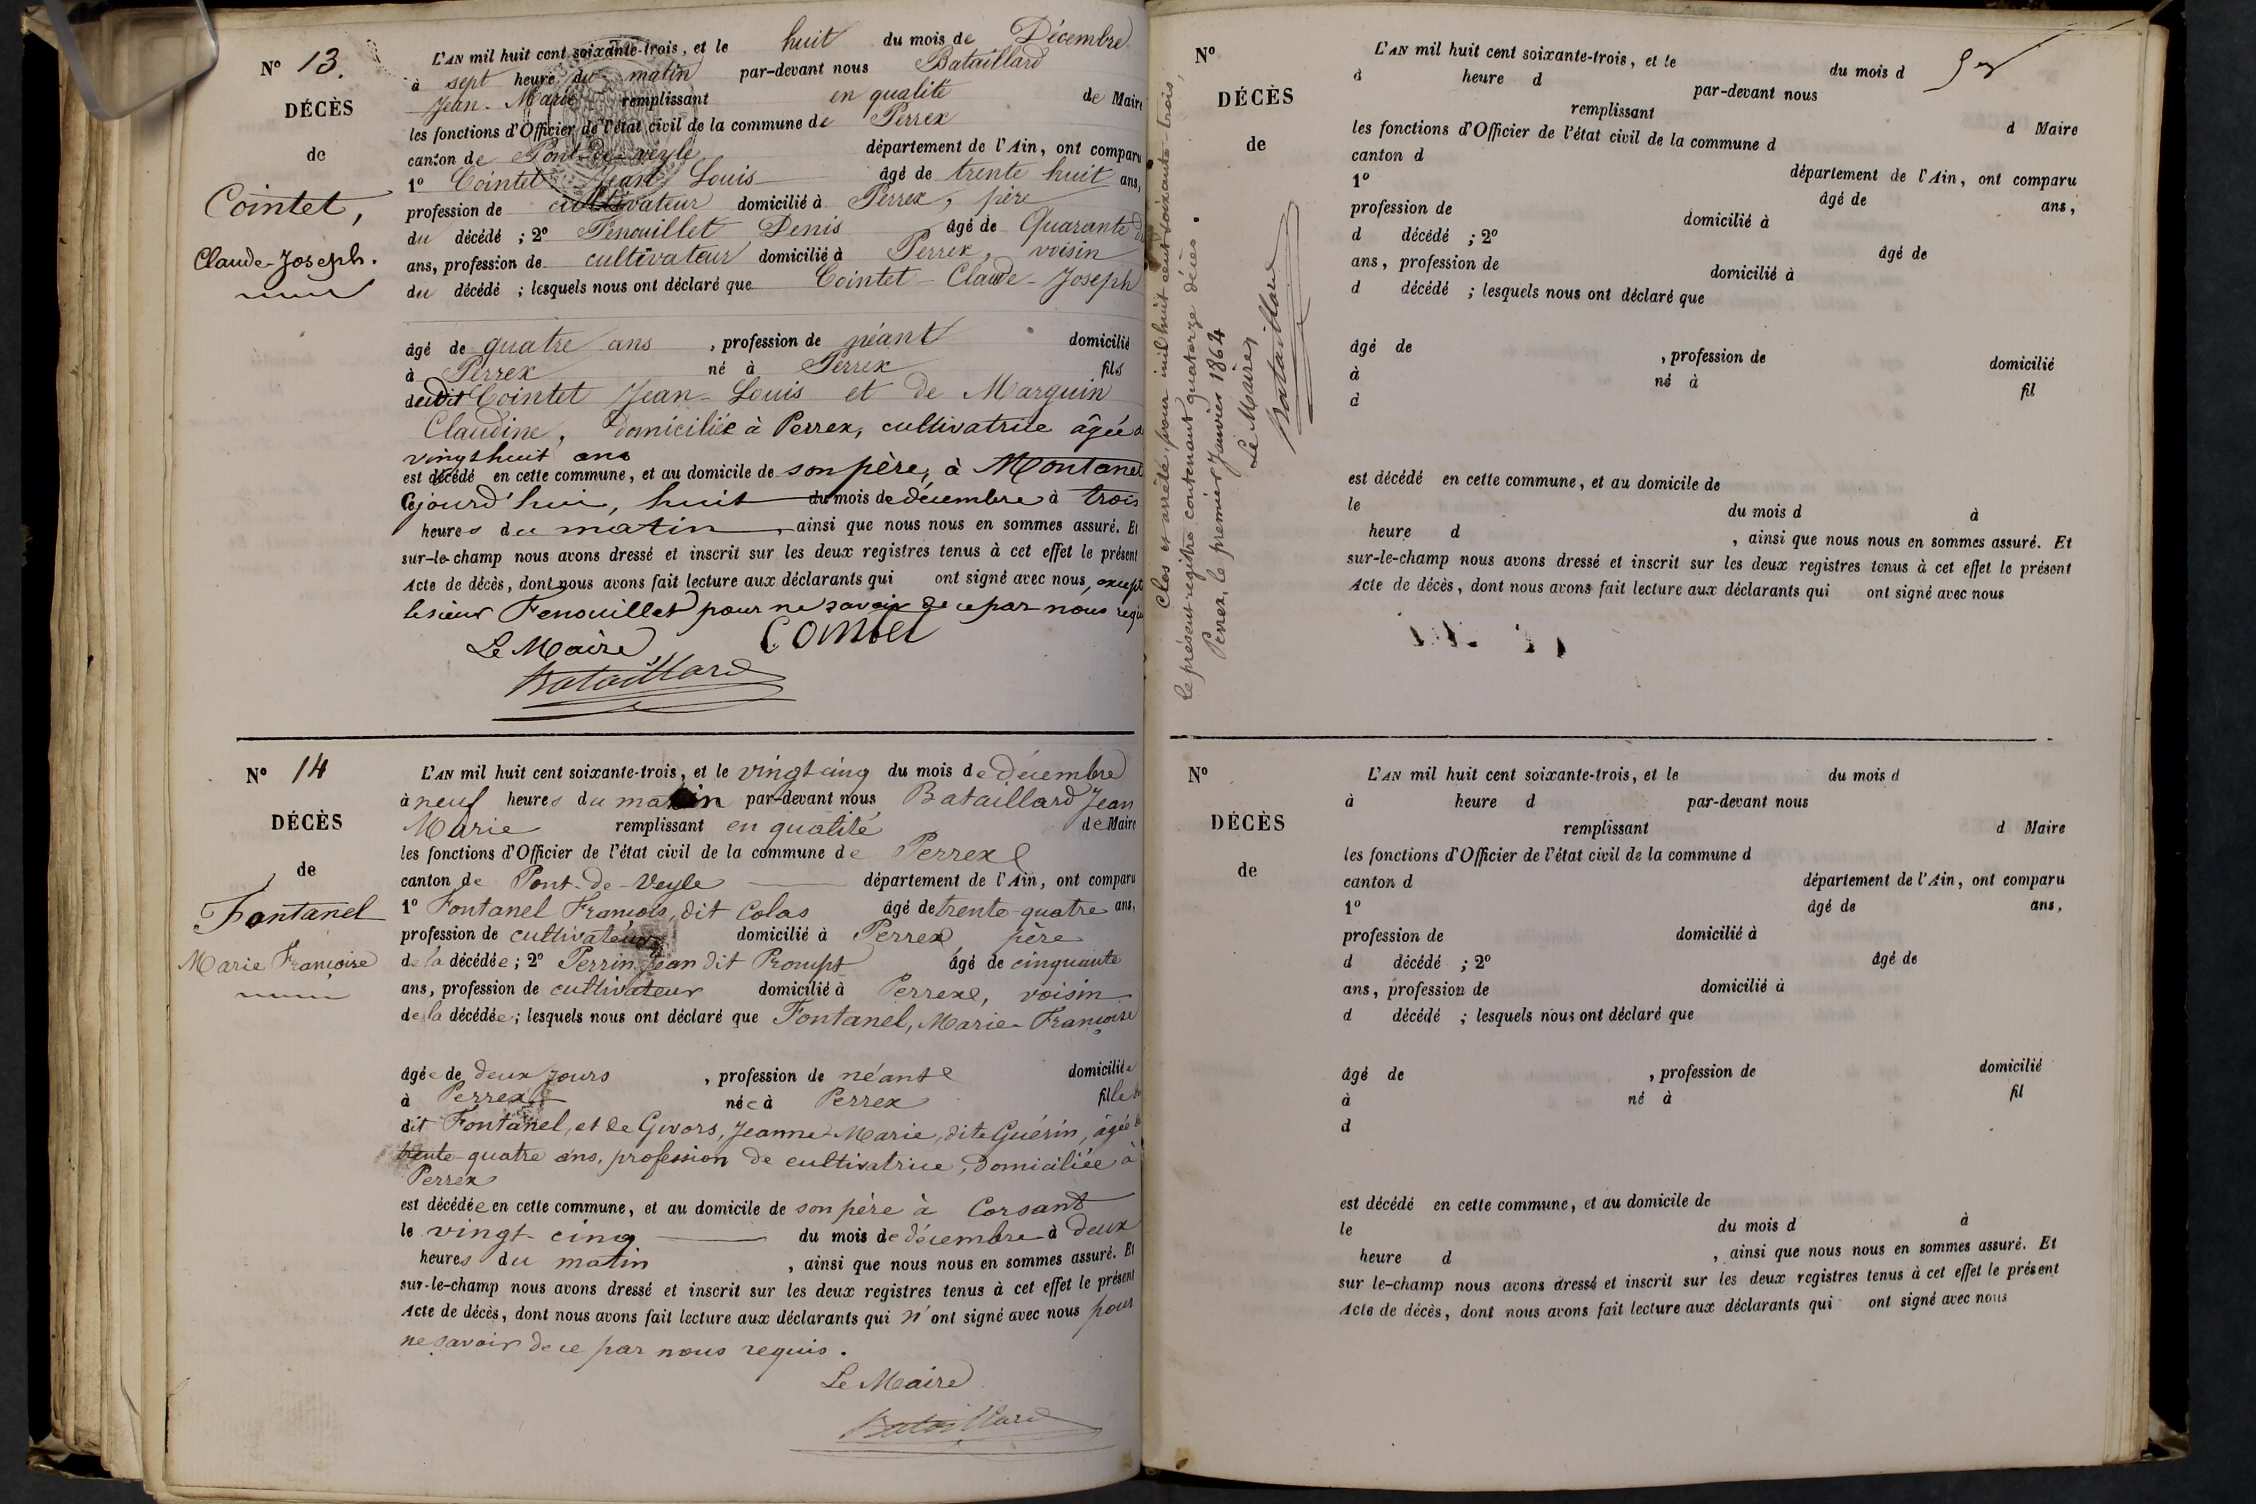 N° 13.
DÉCÈS
de
Cointet,
Claude-Joseph.
L'AN mil huit cent soixante-trois, et le huit du mois de Décembre
à sept heure du matin par-devant nous Bataillard
Jean-Marie remplissant en qualité de Maire
les fonctions d'Officier de l'état civil de la commune de Perrex
canton de Pont-de-veyle département de l'Ain, ont comparu
1° Cointet Jean Louis âgé de trente huit ans,
profession de cultivateur domicilié à Perrex, père
du décédé ; 2° Fenouillet Denis âgé de Quarante
ans, profession de cultivateur domicilié à Perrex, voisin
du décédé ; lesquels nous ont déclaré que Cointet-Claude-Joseph
âgé de quatre ans, profession de néant domicilié
à Perrex né à Perrex fils
dudit Cointet Jean-Louis et de Marguin
Claudine, domiciliée à Perrex, cultivatrice âgée de
vingt huit ans
est décédé en cette commune, et au domicile de son père, à Montanet
Cejourd'hui, huit du mois de décembre à trois
heures du matin, ainsi que nous nous en sommes assuré. Et
sur-le-champ nous avons dressé et inscrit sur les deux registres tenus à cet effet le présent
Acte de décès, dont nous avons fait lecture aux déclarants qui ont signé avec nous, excepté
le sieur Fenouillet pour ne savoir de ce par nous requis
Le Maire Cointet
Bataillard
N° 14
DÉCÈS
de
Fontanel
Marie Françoise
L'AN mil huit cent soixante-trois, et le vingt cinq du mois de décembre
à neuf heures du matin par-devant nous Bataillard Jean
Marie remplissant en qualité de Maire
les fonctions d'Officier de l'état civil de la commune de Perrex
canton de Pont-de-Veyle département de l'Ain, ont comparu
1° Fontanel François, dit Colas âgé de trente-quatre ans,
profession de cultivateur domicilié à Perrex père
de la décédée ; 2° Perrin Jean dit Prompt âgé de cinquante
ans, profession de cultivateur domicilié à Perrex, voisin
de la décédée ; lesquels nous ont déclaré que Fontanel, Marie-Françoise
âgée de deux jours, profession de néant domiciliée
à Perrex née à Perrex fille du
dit Fontanel, et de Givors, Jeanne-Marie, dite Guérin, âgée de
trente-quatre ans, profession de cultivatrice, domiciliée à
Perrex
est décédée en cette commune, et au domicile de son père à Corsant
le vingt-cinq du mois de décembre à deux
heures du matin, ainsi que nous nous en sommes assuré. Et
sur-le-champ nous avons dressé et inscrit sur les deux registres tenus à cet effet le présent
Acte de décès, dont nous avons fait lecture aux déclarants qui n'ont signé avec nous pour
ne savoir de ce par nous requis.
Le Maire
Bataillard
Clos et arrêté, pour mil huit cent soixante-trois,
le présent registre contenant quatorze décès.
Perrex, le premier Janvier 1864
Le Maire
Bataillard
N°
DÉCÈS
de
L'AN mil huit cent soixante-trois, et le du mois d
à heure d par-devant nous
remplissant d Maire
les fonctions d'Officier de l'état civil de la commune d
canton d département de l'Ain, ont comparu
1° âgé de ans,
profession de domicilié à
d décédé ; 2° âgé de
ans, profession de domicilié à
d décédé ; lesquels nous ont déclaré que
âgé de , profession de domicilié
à né à fil
d
est décédé en cette commune, et au domicile de
le du mois d à
heure d , ainsi que nous nous en sommes assuré. Et
sur-le-champ nous avons dressé et inscrit sur les deux registres tenus à cet effet le présent
Acte de décès, dont nous avons fait lecture aux déclarants qui ont signé avec nous
N°
DÉCÈS
de
L'AN mil huit cent soixante-trois, et le du mois d
à heure d par-devant nous
remplissant d Maire
les fonctions d'Officier de l'état civil de la commune d
canton d département de l'Ain, ont comparu
1° âgé de ans,
profession de domicilié à
d décédé ; 2° âgé de
ans, profession de domicilié à
d décédé ; lesquels nous ont déclaré que
âgé de , profession de domicilié
à né à fil
d
est décédé en cette commune, et au domicile de
le du mois d à
heure d , ainsi que nous nous en sommes assuré. Et
sur le-champ nous avons dressé et inscrit sur les deux registres tenus à cet effet le présent
Acte de décès, dont nous avons fait lecture aux déclarants qui ont signé avec nous